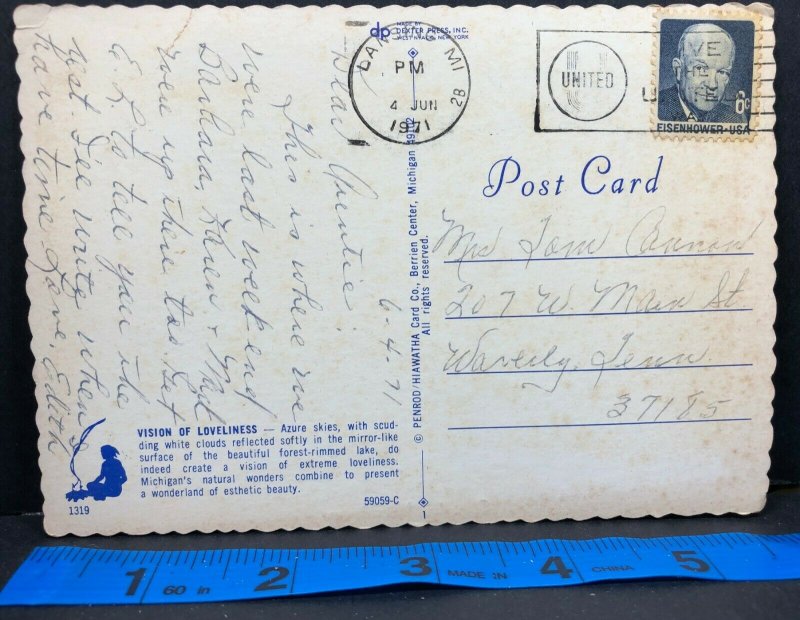 dp MADE BY
DEXTER PRESS, INC.
WEST NYACK, NEW YORK
PM
4 JUN
1971
MI
2B
UNITED
6c
EISENHOWER·USA
Post Card
6-4-71
Dear Auntie:
This is where we
were last weekend
Barbara, Karen +
were up there too.
to tell you the
just. I'll write when I
have time. Love, Edith
Mrs Tom
207 W. Main St.
Waverly, Tenn.
37185
VISION OF LOVELINESS — Azure skies, with scud-
ding white clouds reflected softly in the mirror-like
surface of the beautiful forest-rimmed lake, do
indeed create a vision of extreme loveliness.
Michigan's natural wonders combine to present
a wonderland of esthetic beauty.
1319
59059-C
1
© PENROD/HIAWATHA Card Co., Berrien Center, Michigan 49102
All rights reserved.
1 60 in 2 3 MADE IN 4 CHINA 5